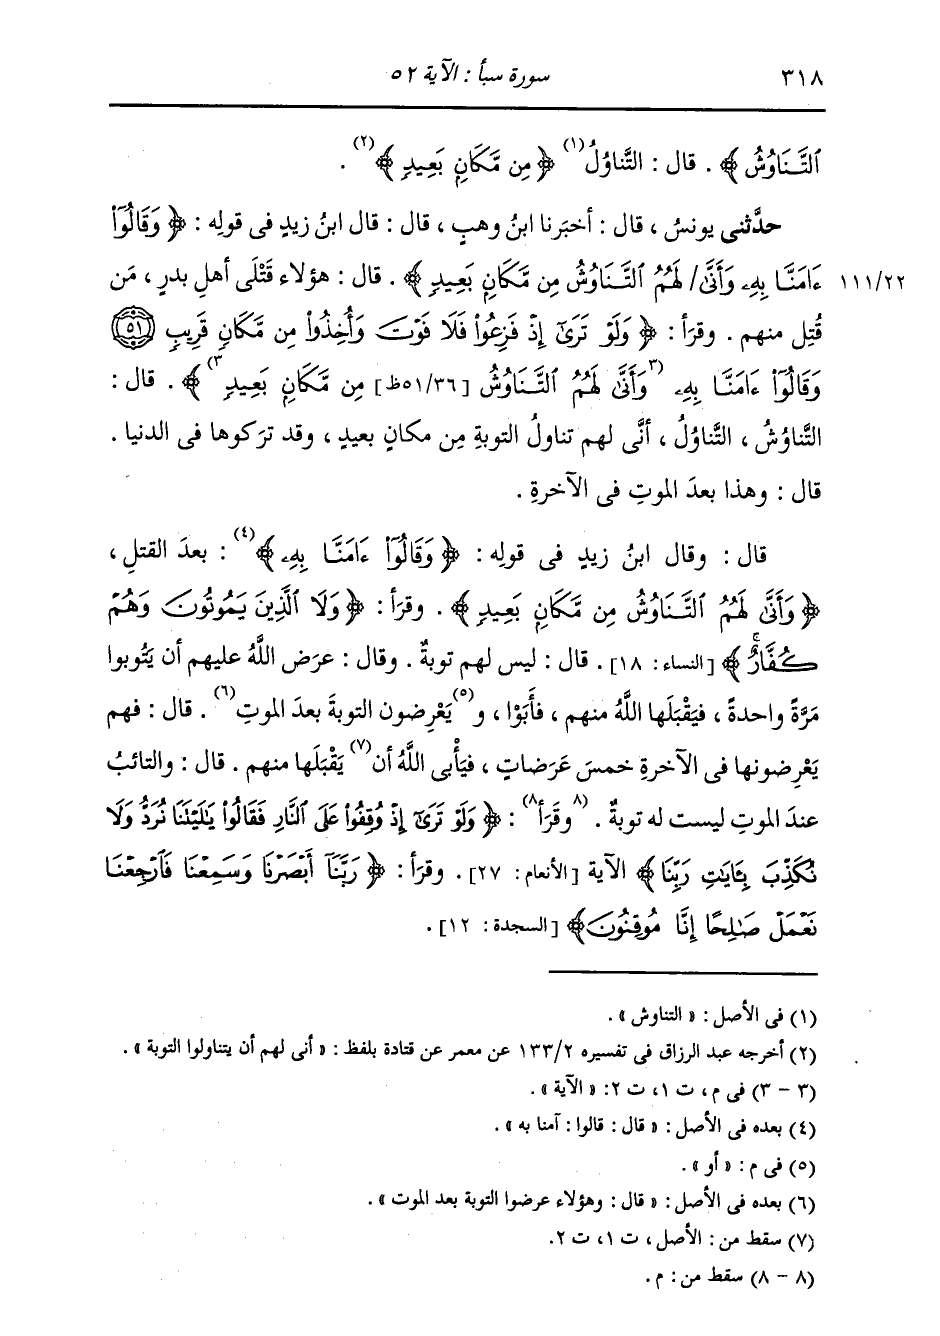 ٣١٨
سورة سبأ : الآية ٥٢
ٱلتَّنَاوُشُ﴾ . قال : التَّناوُلُ(١) ﴿مِن مَّكَانٍ بَعِيدٍ﴾(٢) .
حدَّثنى يونسُ ، قال : أخبَرنا ابنُ وهبٍ ، قال : قال ابنُ زيدٍ فى قولِه : ﴿وَقَالُوٓا۟
ءَامَنَّا بِهِۦ وَأَنَّىٰ/ لَهُمُ ٱلتَّنَاوُشُ مِن مَّكَانٍ بَعِيدٍ﴾ . قال : هؤلاء قَتْلَى أهلِ بدرٍ ، مَن ١١١/٢٢
قُتِل منهم . وقرَأ : ﴿وَلَوْ تَرَىٰٓ إِذْ فَزِعُوا۟ فَلَا فَوْتَ وَأُخِذُوا۟ مِن مَّكَانٍ قَرِيبٍ ٥١
وَقَالُوٓا۟ ءَامَنَّا بِهِۦ (٣)وَأَنَّىٰ لَهُمُ ٱلتَّنَاوُشُ [٥١/٣٦ظ] مِن مَّكَانٍ بَعِيدٍ(٣)﴾ . قال :
التَّناوُشُ ، التَّناوُلُ ، أنَّى لهم تناولُ التوبةِ مِن مكانٍ بعيدٍ ، وقد ترَكوها فى الدنيا .
قال : وهذا بعدَ الموتِ فى الآخرةِ .
قال : وقال ابنُ زيدٍ فى قولِه : ﴿وَقَالُوٓا۟ ءَامَنَّا بِهِۦ﴾(٤) : بعدَ القتلِ ،
﴿وَأَنَّىٰ لَهُمُ ٱلتَّنَاوُشُ مِن مَّكَانٍ بَعِيدٍ﴾ . وقرَأ : ﴿وَلَا ٱلَّذِينَ يَمُوتُونَ وَهُمْ
كُفَّارٌ﴾ [النساء: ١٨] . قال : ليس لهم توبةٌ . وقال : عرَض اللَّهُ عليهم أن يَتُوبوا
مَرَّةً واحدةً ، فيَقْبَلَها اللَّهُ منهم ، فأَبَوْا ، و(٥)يَعْرِضون التوبةَ بعدَ الموتِ(٦) . قال : فهم
يَعْرِضونها فى الآخرةِ خمسَ عَرَضاتٍ ، فيَأْبى اللَّهُ أن(٧) يَقْبَلَها منهم . قال : والتائبُ
عندَ الموتِ ليست له توبةٌ . (٨)وقَرأ(٨) : ﴿وَلَوْ تَرَىٰٓ إِذْ وُقِفُوا۟ عَلَى ٱلنَّارِ فَقَالُوا۟ يَٰلَيْتَنَا نُرَدُّ وَلَا
نُكَذِّبَ بِـَٔايَٰتِ رَبِّنَا﴾ الآية [الأنعام: ٢٧] . وقرَأ : ﴿رَبَّنَآ أَبْصَرْنَا وَسَمِعْنَا فَٱرْجِعْنَا
نَعْمَلْ صَٰلِحًا إِنَّا مُوقِنُونَ﴾ [السجدة: ١٢] .
(١) فى الأصل : « التناوش » .
(٢) أخرجه عبد الرزاق فى تفسيره ١٣٣/٢ عن معمر عن قتادة بلفظ : « أنى لهم أن يتناولوا التوبة » .
(٣ - ٣) فى م، ت ١، ت ٢: « الآية » .
(٤) بعده فى الأصل : « قال : قالوا : آمنا به » .
(٥) فى م : « أو » .
(٦) بعده فى الأصل : « قال : وهؤلاء عرضوا التوبة بعد الموت » .
(٧) سقط من : الأصل، ت ١، ت ٢.
(٨ - ٨) سقط من : م.